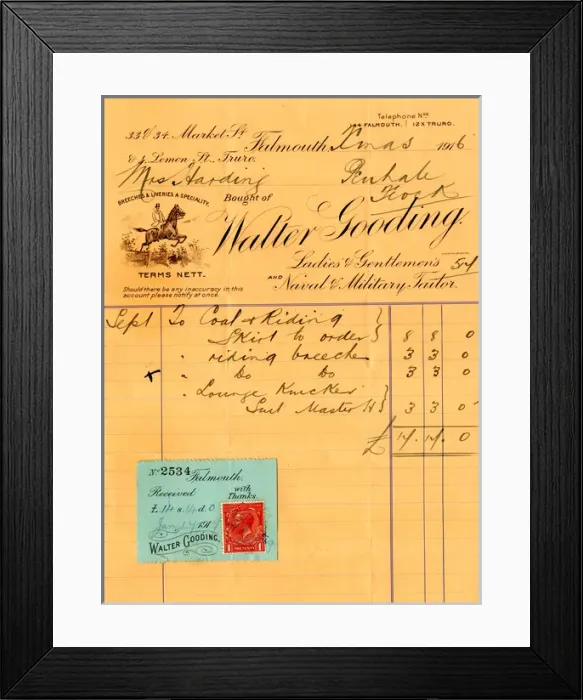 Telephone Nos
144 FALMOUTH. 12X TRURO.
33 & 34. Market St.
Falmouth, Xmas 1916
& 4. Lemon St., Truro.
Mrs Harding
Penhale
BREECHES & LIVERIES A SPECIALITY.
Bought of
Walter Gooding.
TERMS NETT.
Ladies' & Gentlemen's
AND Naval & Military Tailor.
Should there be any inaccuracy in this
account please notify at once.
Sept To Coat & Riding
Skirt to order 8 8 0
" riding breeches 3 3 0
x " Do Do 3 3 0
" Lounge Knicker
Suit Master H 3 3 0
£ 14. 14. 0
No 2534 Falmouth.
Received with
Thanks.
£ 14 s. 14 d. 0
WALTER GOODING.
1 1